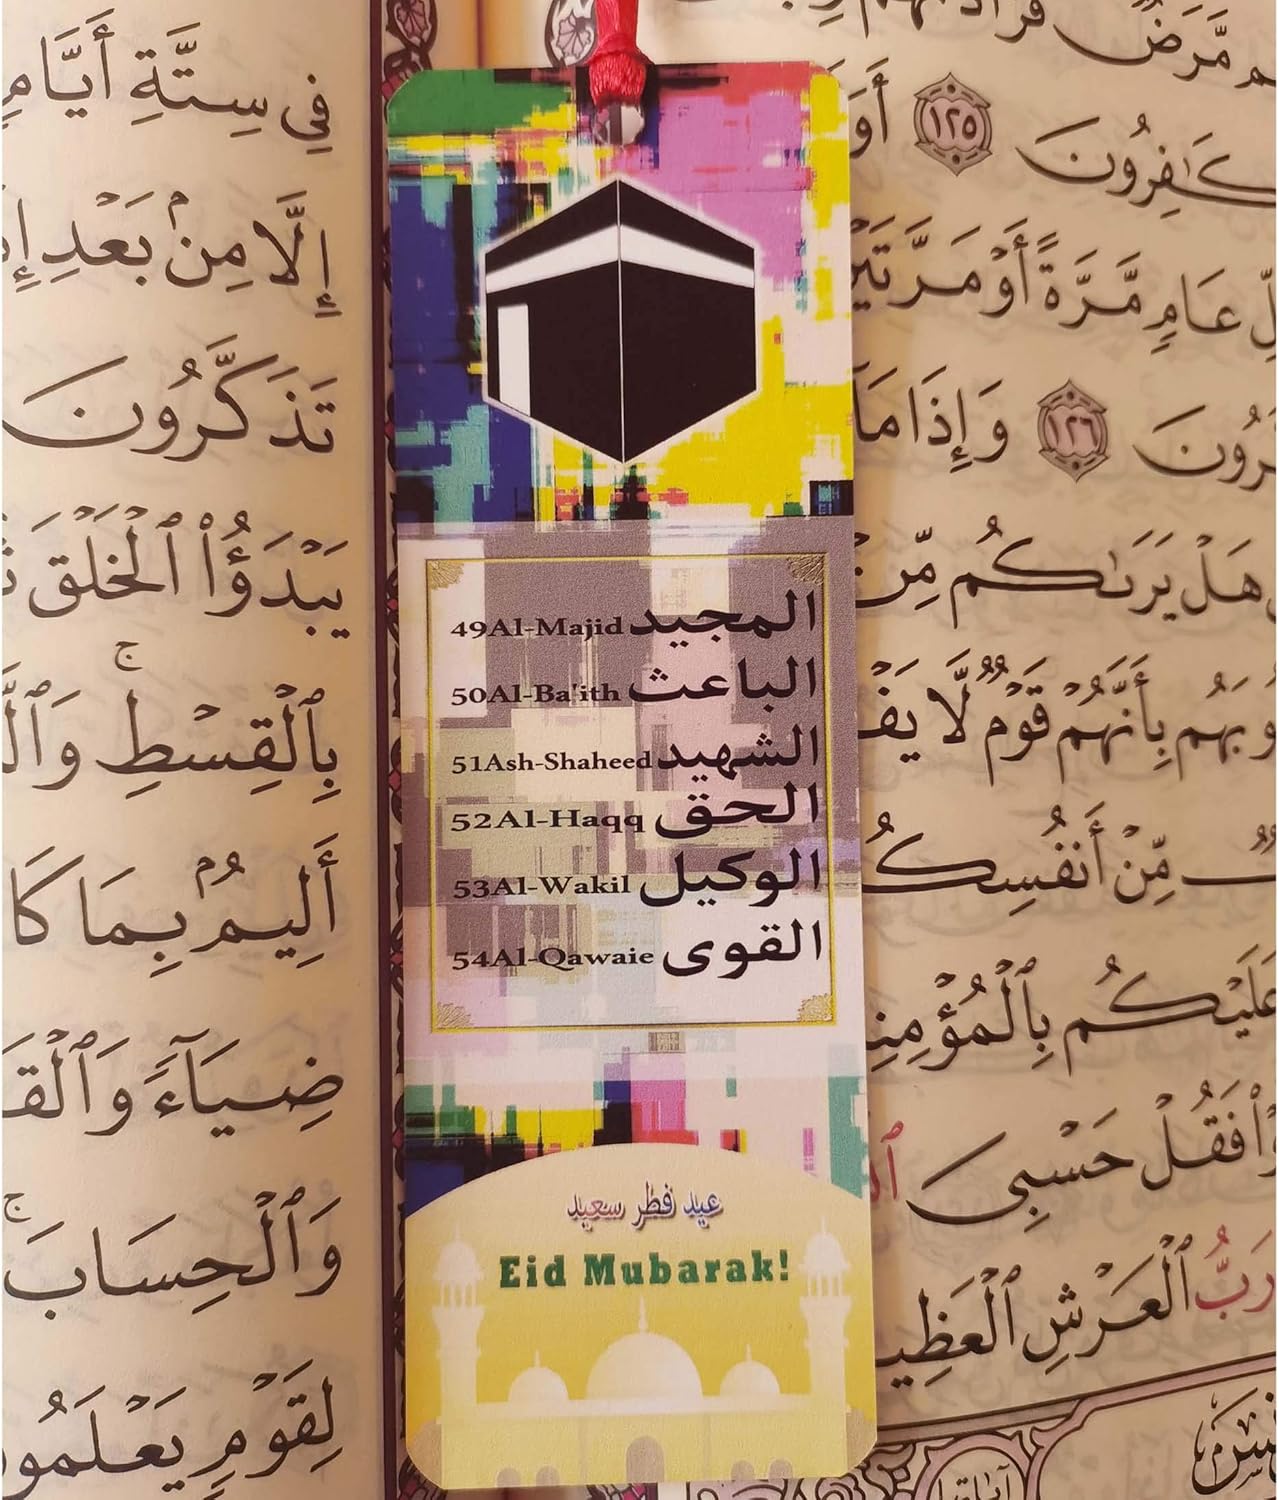 المجيد 49Al-Majid
الباعث 50Al-Ba'ith
الشهيد 51Ash-Shaheed
الحق 52Al-Haqq
الوكيل 53Al-Wakil
القوى 54Al-Qawaie
عيد فطر سعيد
Eid Mubarak!
كَٰفِرُونَ ١٢٥
عَامٖ مَّرَّةً أَوۡ مَرَّتَيۡنِ
١٢٦ وَإِذَا مَآ
هَلۡ يَرَىٰكُم مِّنۡ
بِأَنَّهُمۡ قَوۡمٞ لَّا
مِّنۡ أَنفُسِكُمۡ
عَلَيۡكُم بِٱلۡمُؤۡمِنِينَ
فَقُلۡ حَسۡبِيَ
رَبُّ ٱلۡعَرۡشِ ٱلۡعَظِيمِ
فِي سِتَّةِ أَيَّامٖ
إِلَّا مِنۢ بَعۡدِ
تَذَكَّرُونَ
يَبۡدَؤُاْ ٱلۡخَلۡقَ
بِٱلۡقِسۡطِۚ
أَلِيمُۢ بِمَا
ضِيَآءٗ
وَٱلۡحِسَابَۚ
لِقَوۡمٖ يَعۡلَمُونَ